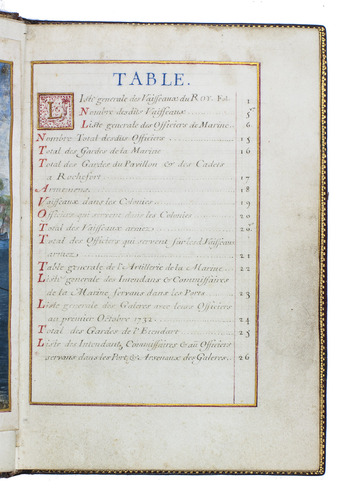 TABLE.
Liste generale des Vaisseaux du ROY. Fol. 1
Nombre desdits Vaisseaux 5
Liste generale des Officiers de Marine 6
Nombre Total desdits Officiers 15
Total des Gardes de la Marine 16
Total des Gardes du Pavillon & des Cadets
a Rochefort 17
Armemens 18
Vaisseaux dans les Colonies 19
Officiers qui servent dans les Colonies 20
Total des Vaisseaux armez 26.
Total des Officiers qui servent sur les d. Vaisseaux
armez 21
Table generale de l'Artillerie de la Marine 22
Liste generale des Intendans & Commissaires
de la Marine servans dans les Ports 23
Liste generale des Galeres avec leurs Officiers
au premier Octobre 1732 24
Total des Gardes de l'Etendart 25
Liste des Intendants, Commissaires & au Officiers
servans dans les Ports & Arcenaux des Galeres 26